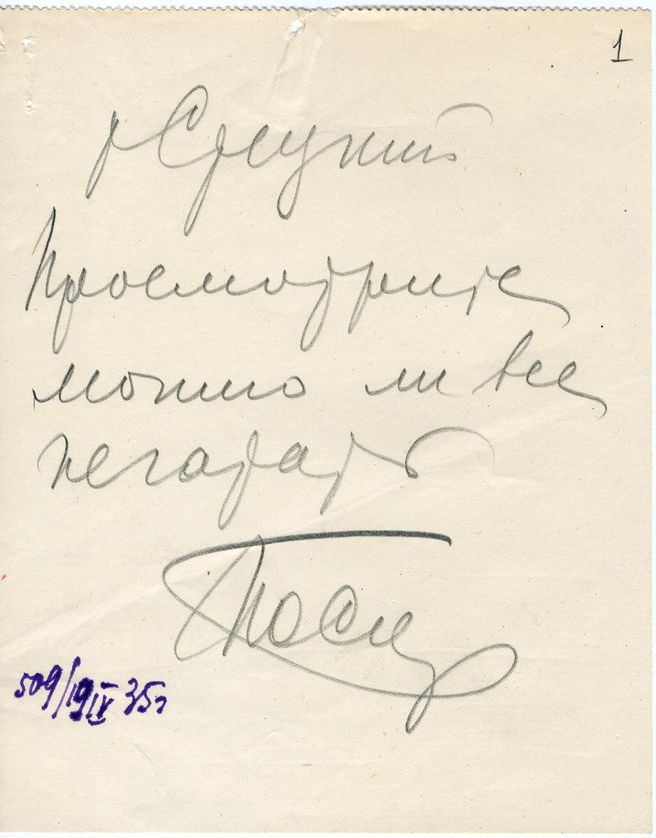 1
т Слуцкий
Просмотрите
можно ли все
печатать
509/19 IX 35 г